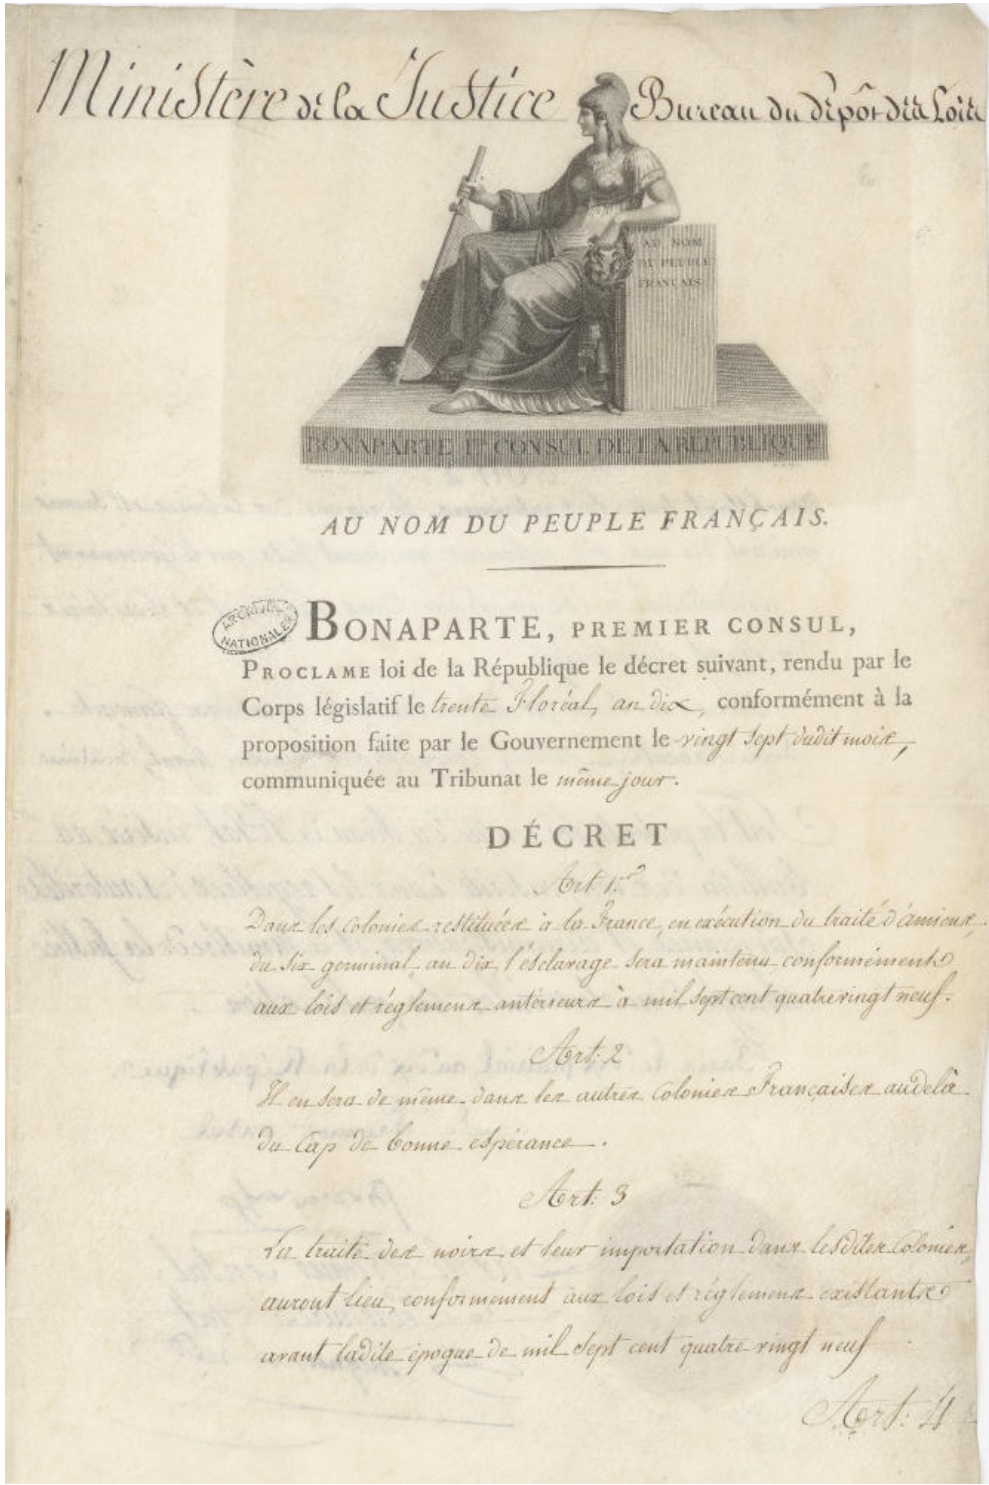 Ministère de la Justice Bureau du dépôt des Lois
AU NOM
DU PEUPLE
FRANÇAIS
BONAPARTE Ier CONSUL DE LA REPUBLIQUE
AU NOM DU PEUPLE FRANÇAIS.
ARCHIVES
NATIONALES
BONAPARTE, PREMIER CONSUL,
PROCLAME loi de la République le décret suivant, rendu par le
Corps législatif le trente Floréal, an dix, conformément à la
proposition faite par le Gouvernement le vingt sept dudit mois,
communiquée au Tribunat le même jour.
DÉCRET
Art 1er
Dans les colonies restituées à la France, en exécution du traité d'amiens,
du six germinal, an dix, l'esclavage sera maintenu conformément
aux lois et réglemens antérieurs à mil sept cent quatre vingt neuf.
Art: 2
Il en sera de même dans les autres Colonies Françaises audelà
du Cap de bonne espérance.
Art: 3
La traite des noirs et leur importation dans lesdites Colonies,
auront lieu, conformément aux lois et réglemens existants
avant ladite époque de mil sept cent quatre vingt neuf
Art: 4